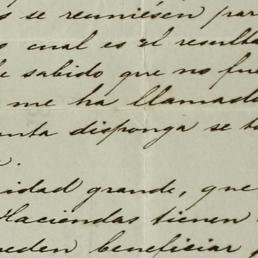 s se reuniesén par
o cual es el resulta
e sabido que no fue
me ha llamado
unta disponga se t
idad grande, que
Haciendas tienen
ueden beneficiar